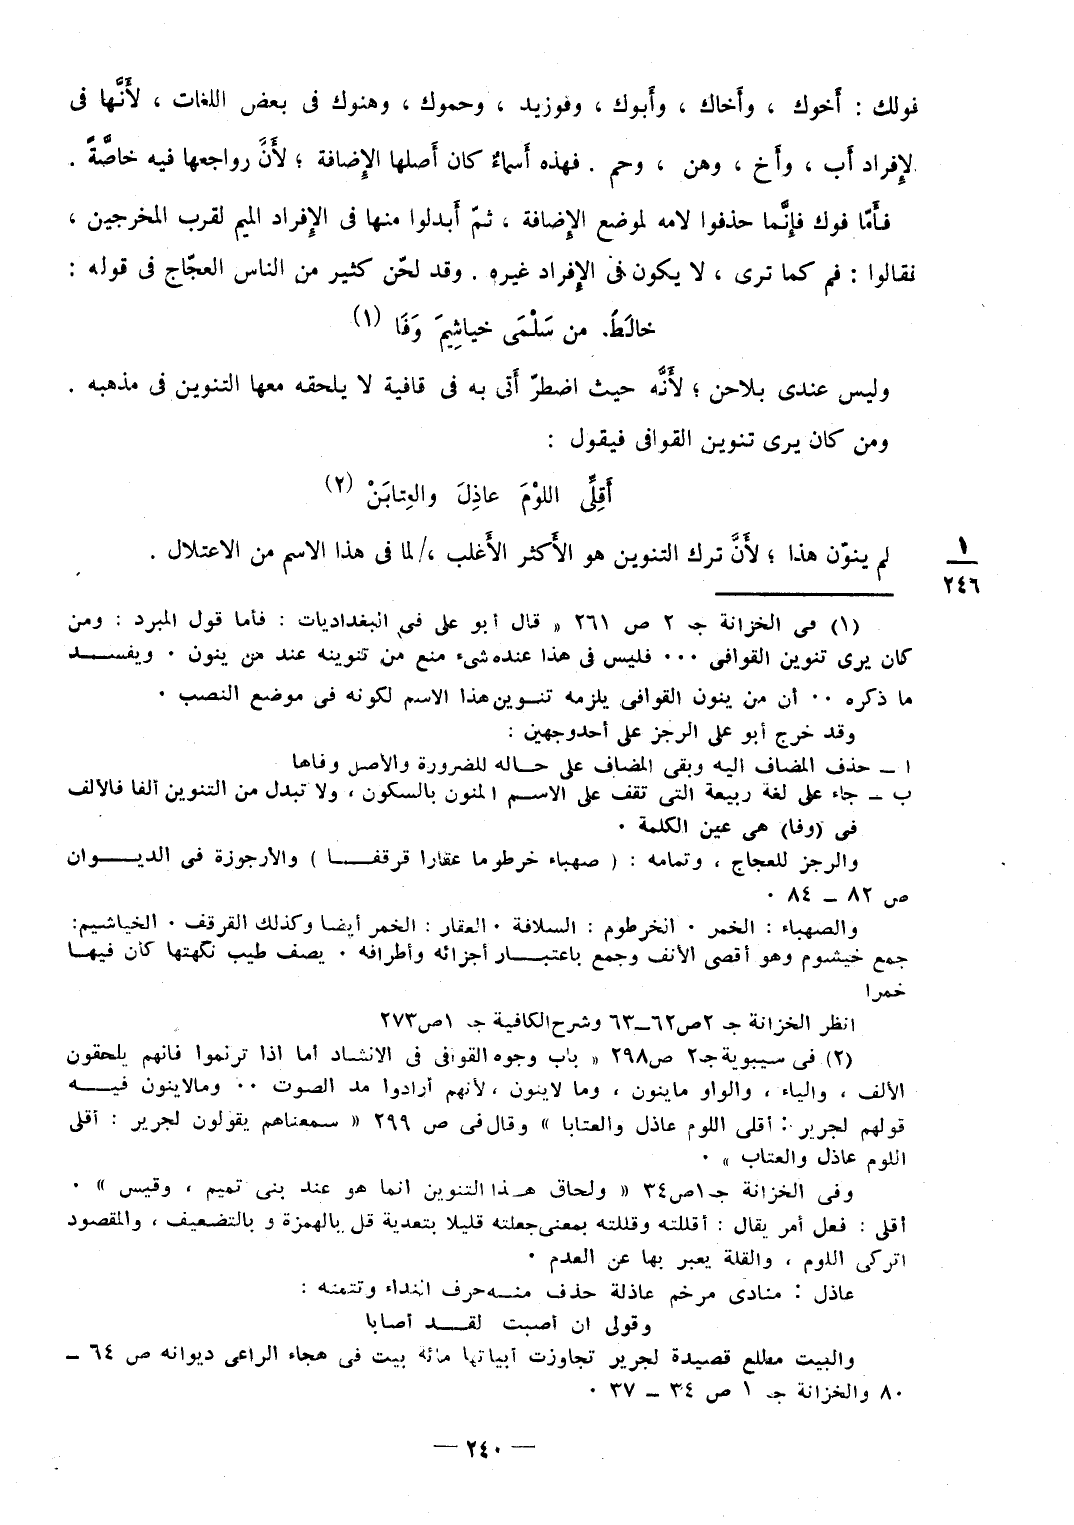 قولك : أَخوك ، وأَخاك ، وأَبوك ، وفوزيد ، وحموك ، وهنوك فى بعض اللغات ، لأَنَّها فى
لإِفراد أَب ، وأَخ ، وهن ، وحم . فهذه أَسماءٌ كان أَصلها الإِضافة ؛ لأَنَّ رواجعها فيه خاصَّةً .
فأَمّا فوك فإِنَّما حذفوا لامه لموضع الإِضافة ، ثمّ أَبدلوا منها فى الإِفراد الميم لقرب المخرجين ،
نقالوا : فم كما ترى ، لا يكون فى الإِفراد غيره . وقد لحّن كثير من الناس العجّاج فى قوله :
خالَطَ. من سَلْمَى خياشِيمَ وَفَا (١)
وليس عندى بلاحن ؛ لأَنَّه حيث اضطرّ أَتى به فى قافية لا يلحقه معها التنوين فى مذهبه .
ومن كان يرى تنوين القوافى فيقول :
أَقِلِّى اللوْمَ عاذِلَ والعِتابَنْ (٢)
لم ينوّن هذا ؛ لأَنَّ ترك التنوين هو الأَكثر الأَغلب ،/لما فى هذا الاسم من الاعتلال .
١
٢٤٦
(١) فى الخزانة جـ ٢ ص ٢٦١ « قال أبو على فى البغداديات : فأما قول المبرد : ومن
كان يرى تنوين القوافى ٠٠٠ فليس فى هذا عنده شىء منع من تنوينه عند من ينون ٠ ويفســد
ما ذكره ٠٠ أن من ينون القوافى يلزمه تنــوين هذا الاسم لكونه فى موضع النصب ٠
وقد خرج أبو على الرجز على أحدوجهين :
ا ــ حذف المضاف اليه وبقى المضاف على حــاله للضرورة والأصل وفاها
ب ــ جاء على لغة ربيعة التى تقف على الاســم المنون بالسكون ، ولا تبدل من التنوين ألفا فالألف
فى (وفا) هى عين الكلمة ٠
والرجز للعجاج ، وتمامه : ( صهباء خرطوما عقارا قرقفــا ) والأرجوزة فى الديــوان
ص ٨٢ ــ ٨٤ ٠
والصهباء : الخمر ٠ انخرطوم : السلافة ٠ العقار : الخمر أيضا وكذلك القرقف ٠ الخياشيم:
جمع خيشوم وهو أقصى الأنف وجمع باعتبــار أجزائه وأطرافه ٠ يصف طيب نكهتها كأن فيهــا
خمرا
انظر الخزانة جـ ٢ص٦٢ــ٦٣ وشرح الكافية جـ ١ص٢٧٣
(٢) فى سيبوية جـ٢ ص٢٩٨ « باب وجوه القوافى فى الانشاد أما اذا ترنموا فانهم يلحقون
الألف ، والياء ، والواو ماينون ، وما لاينون ، لأنهم أرادوا مد الصوت ٠٠ ومالاينون فيــه
قولهم لجرير : أقلى اللوم عاذل والعتابا » وقال فى ص ٢٩٩ « سمعناهم يقولون لجرير : أقلى
اللوم عاذل والعتاب » ٠
وفى الخزانة جـ١ص٣٤ « ولحاق هــذا التنوين انما هو عند بنى تميم ، وقيس » ٠
أقلى : فعل أمر يقال : أقللته وقللته بمعنى جعلته قليلا بتعدية قل بالهمزة و بالتضعيف ، والمقصود
اتركى اللوم ، والقلة يعبر بها عن العدم ٠
عاذل : منادى مرخم عاذلة حذف منــه حرف النداء وتتمته :
وقولى ان أصبت لقــد أصابا
والبيت مطلع قصيدة لجرير تجاوزت أبياتها مائة بيت فى هجاء الراعى ديوانه ص ٦٤ ــ
٨٠ والخزانة جـ ١ ص ٣٤ ــ ٣٧ ٠
— ٢٤٠ —